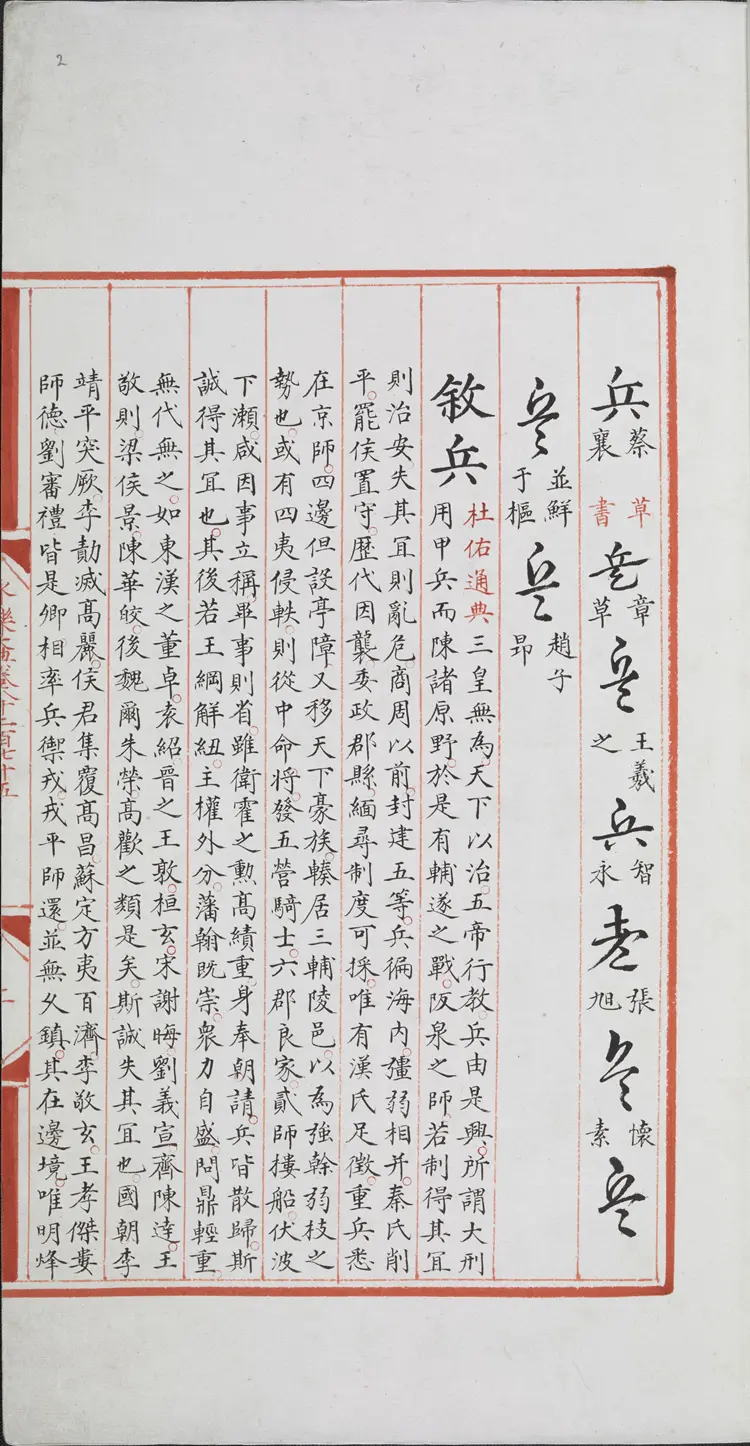 兵蔡襄 草書 兵章草 兵王羲之 兵智永 兵張旭 兵懷素 兵
並鮮于樞 兵趙子昂
敘兵
杜佑通典三皇無為天下以治五帝行教兵由是興所謂大刑
用甲兵而陳諸原野於是有輔遂之戰阪泉之師若制得其冝
則治安失其冝則亂危商周以前封建五等兵徧海内彊弱相并秦氏削
平罷侯置守歴代因襲委政郡縣緬尋制度可採唯有漢氏足徵重兵悉
在京師四邊但設亭障又移天下豪族輳居三輔陵邑以為強幹弱枝之
勢也或有四夷侵軼則從中命將發五營騎士六郡良家貳師樓船伏波
下瀨咸因事立稱畢事則省雖衛霍之勲高績重身奉朝請兵皆散歸斯
誠得其冝也其後若王綱解紐主權外分藩翰既崇衆力自盛問鼎輕重
無代無之如東漢之董卓袁紹晉之王敦桓玄宋謝晦劉義宣齊陳達王
敬則梁侯景陳華皎後魏爾朱榮高歡之類是矣斯誠失其冝也國朝李
靖平突厥李勣滅高麗侯君集覆高昌蘇定方夷百濟李敬玄王孝傑婁
師德劉審禮皆是卿相率兵禦戎戎平師還並無久鎮其在邊境唯明烽
永樂大典卷八千二百七十五
二
2